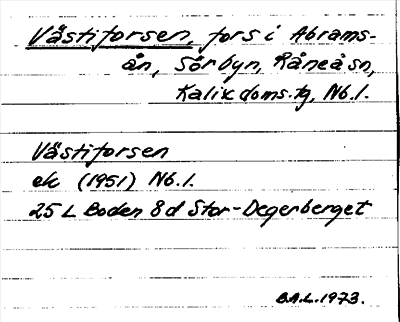 Västiforsen, fors i Abrams-
ån, Sörbyn, Råneå sn,
Kalix doms.tg, Nb.l.
Västiforsen
ek (1951) Nb.l.
25 L Boden 8d Stor-Degerberget
B.A.L. 1973.